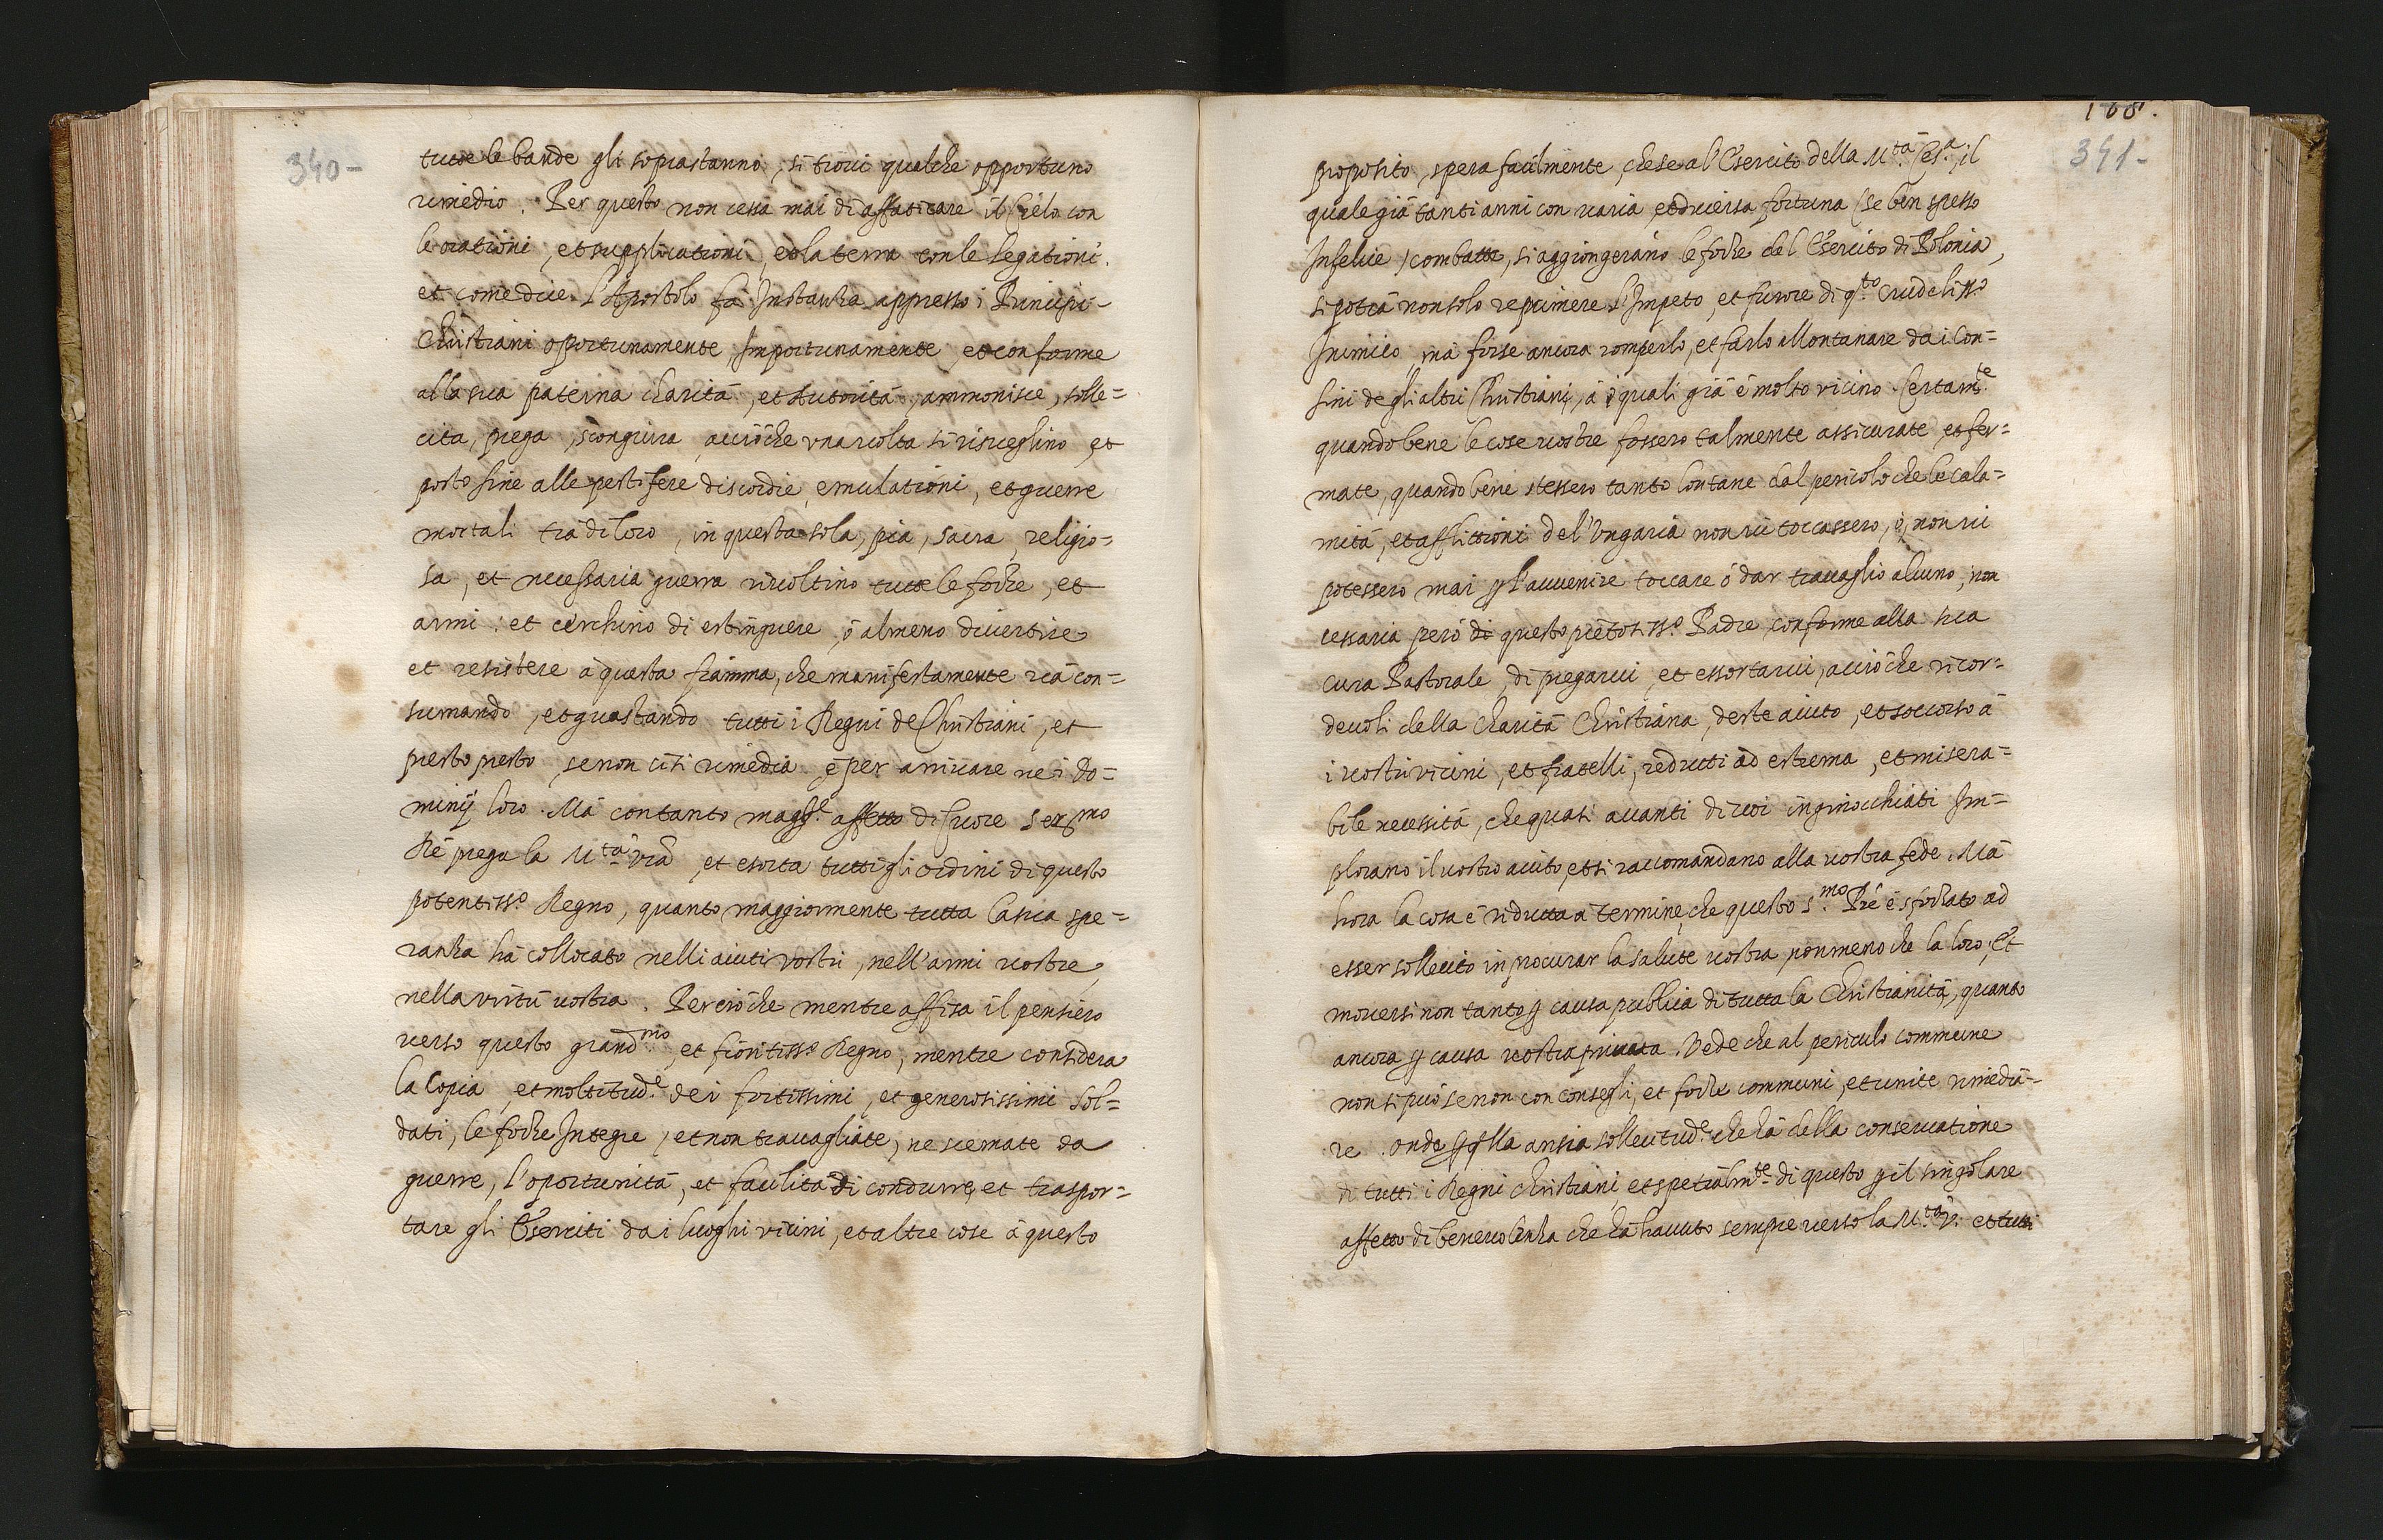 340-
tutte le bande gli soprastanno, si trovi qualche opportuno
rimedio. Per questo non cessa mai di affaticare il Cielo con
le orationi, et supplicationi, et la terra con le legationi.
et come dice l'Apostolo fa Instanza appresso i Principi
Christiani oportunamente, Importunamente, et conforme
alla sua paterna charità, et Autorità, ammonisce, solle=
cita, prega, scongiura acciòche una volta si risveglino, et
posto fine alle pestifere discordie, emulationi, et guerre
mortali trà di loro, in questa sola, pia, sacra, religio=
sa, et necessaria guerra rivoltino tutte le forze, et
armi: et cerchino di estinguere, ò almeno divertire
et resistere à questa fiamma, che manifestamente và con=
sumando, et guastando tutti i Regni de Christiani, et
presto presto, se non ci si rimedia, è per arrivare ne i do=
minij loro. Mà con tanto magg.e affetto di cuore Ser.mo
Rè prega la M.tà vrã, et esorta tutti gli ordini di questo
potentiss.o Regno, quanto maggiormente tutta la sua spe=
ranza hà collocato nelli aiuti vostri, nell'armi vostre,
nella virtù vostra. Percioche mentre affisa il pensiero
verso questo grand.mo, et fioritiss.o Regno, mentre considera
la Copia, et moltitud.e dei fortissimi, et generosissimi sol=
dati, le forze Integre, et non travagliate, ne scemate da
guerre, l'oportunità, et facilità di condurre, et traspor=
tare gli Eserciti da i luoghi vicini, et altre cose à questo
168.
341-
proposito, spera facilmente, che se al Esercito della M.tà Ces.a, il
quale già tanti anni con varia, et diversa fortuna (se ben spesso
Infelice) combatte, si aggiongerano le forze del Esercito di Polonia,
si potrà non solo reprimere l'Impeto, et furore di q.to crudeliss.o
Inimico, mà forse ancora romperlo, et farlo allontanare da i Con=
fini degli altri Christiani, à i quali già è molto vicino. Certam.te
quando bene le cose vostre fossero talmente assicurate, et fer=
mate, quando bene stessero tanto lontane dal pericolo che le cala=
mità, et afflittioni del'Ungaria non vi toccassero, ò, non vi
potessero mai p l'avvenire toccare ò dar travaglio alcuno, non
cessaria però di questo pietosiss.o Padre conforme alla sua
cura Pastorale, di pregarvi, et essortarvi, acciòche ricor=
devoli della charità Christiana, deste aiuto, et soccorso à
i vostri vicini, et fratelli, redutti ad estrema, et misera=
bile necessità, che quasi avanti di voi inginocchiati Im=
plorano il vostro aiuto, et si raccomandano alla vostra fede. Mà
hora la cosa è ridutta à termine, che questo S.mo Prè è sforzato ad
esser sollecito in procurar la salute vostra, non meno che la loro, Et
moversi non tanto p causa publica di tutta la Christianità, quanto
ancora p causa vostra privata. Vede che al periculo commune
non si può se non con consegli, et forze communi, et unite rimedia=
re. Onde p q.lla ansia sollecitud.e che hà della conservatione
di tutti i Regni christiani et spetialm.te di questo p il singolare
affetto di benevolenza che hà havuto sempre verso la M.tà V. et tutti